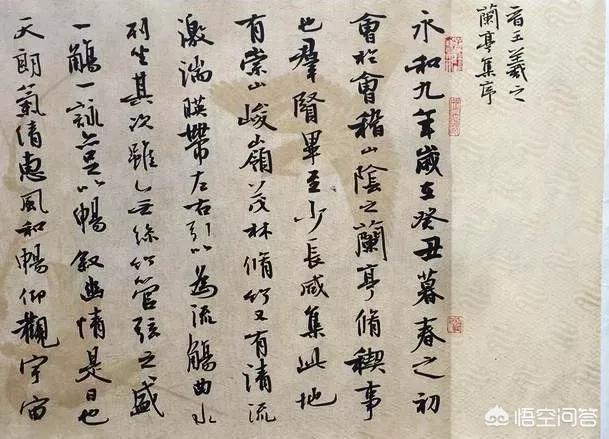 晉王羲之
蘭亭集序
永和九年歲在癸丑暮春之初
會於會稽山陰之蘭亭脩稧事
也羣賢畢至少長咸集此地
有崇山峻嶺茂林脩竹又有清流
激湍暎帶左右引以為流觴曲水
列坐其次雖無絲竹管弦之盛
一觴一詠亦足以暢敘幽情是日也
天朗氣清惠風和暢仰觀宇宙
悟空问答